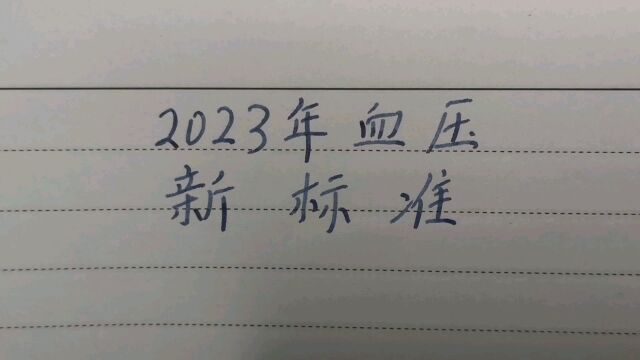 2023年血压
新标准